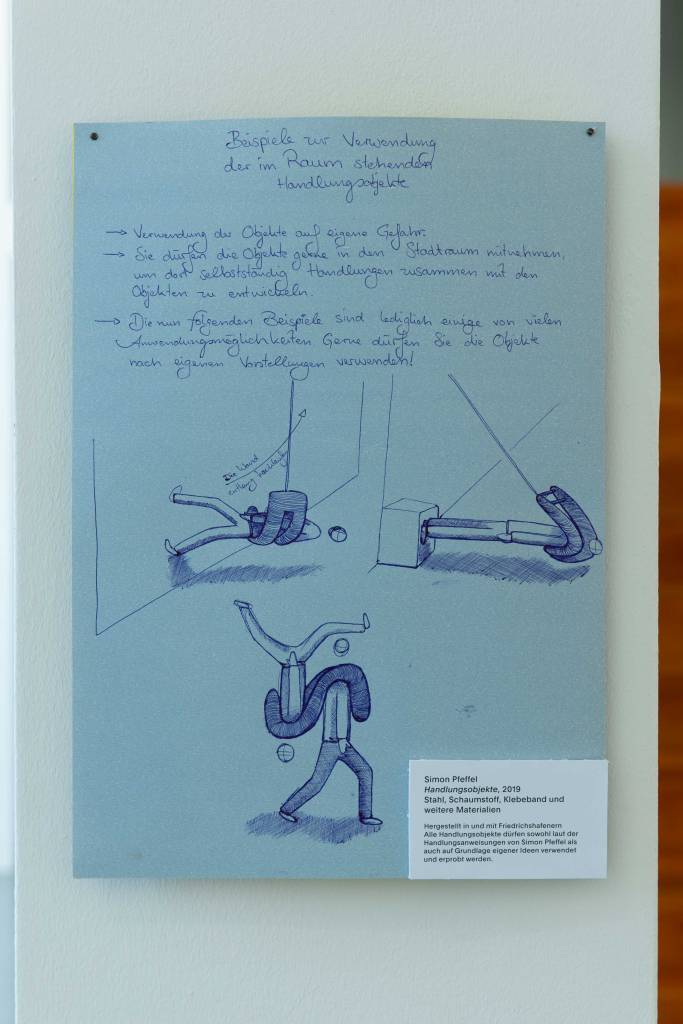 Beispiele zur Verwendung
der im Raum stehenden
Handlungsobjekte
→ Verwendung der Objekte auf eigene Gefahr.
→ Sie dürfen die Objekte gerne in den Stadtraum mitnehmen,
um dort selbstständig Handlungen zusammen mit den
Objekten zu entwickeln.
→ Die nun folgenden Beispiele sind lediglich einige von vielen
Anwendungsmöglichkeiten Gerne dürfen Sie die Objekte
nach eigenen Vorstellungen verwenden!
Die Wand
entlang
Simon Pfeffel
Handlungsobjekte, 2019
Stahl, Schaumstoff, Klebeband und
weitere Materialien
Hergestellt in und mit Friedrichshafenern
Alle Handlungsobjekte dürfen sowohl laut der
Handlungsanweisungen von Simon Pfeffel als
auch auf Grundlage eigener Ideen verwendet
und erprobt werden.